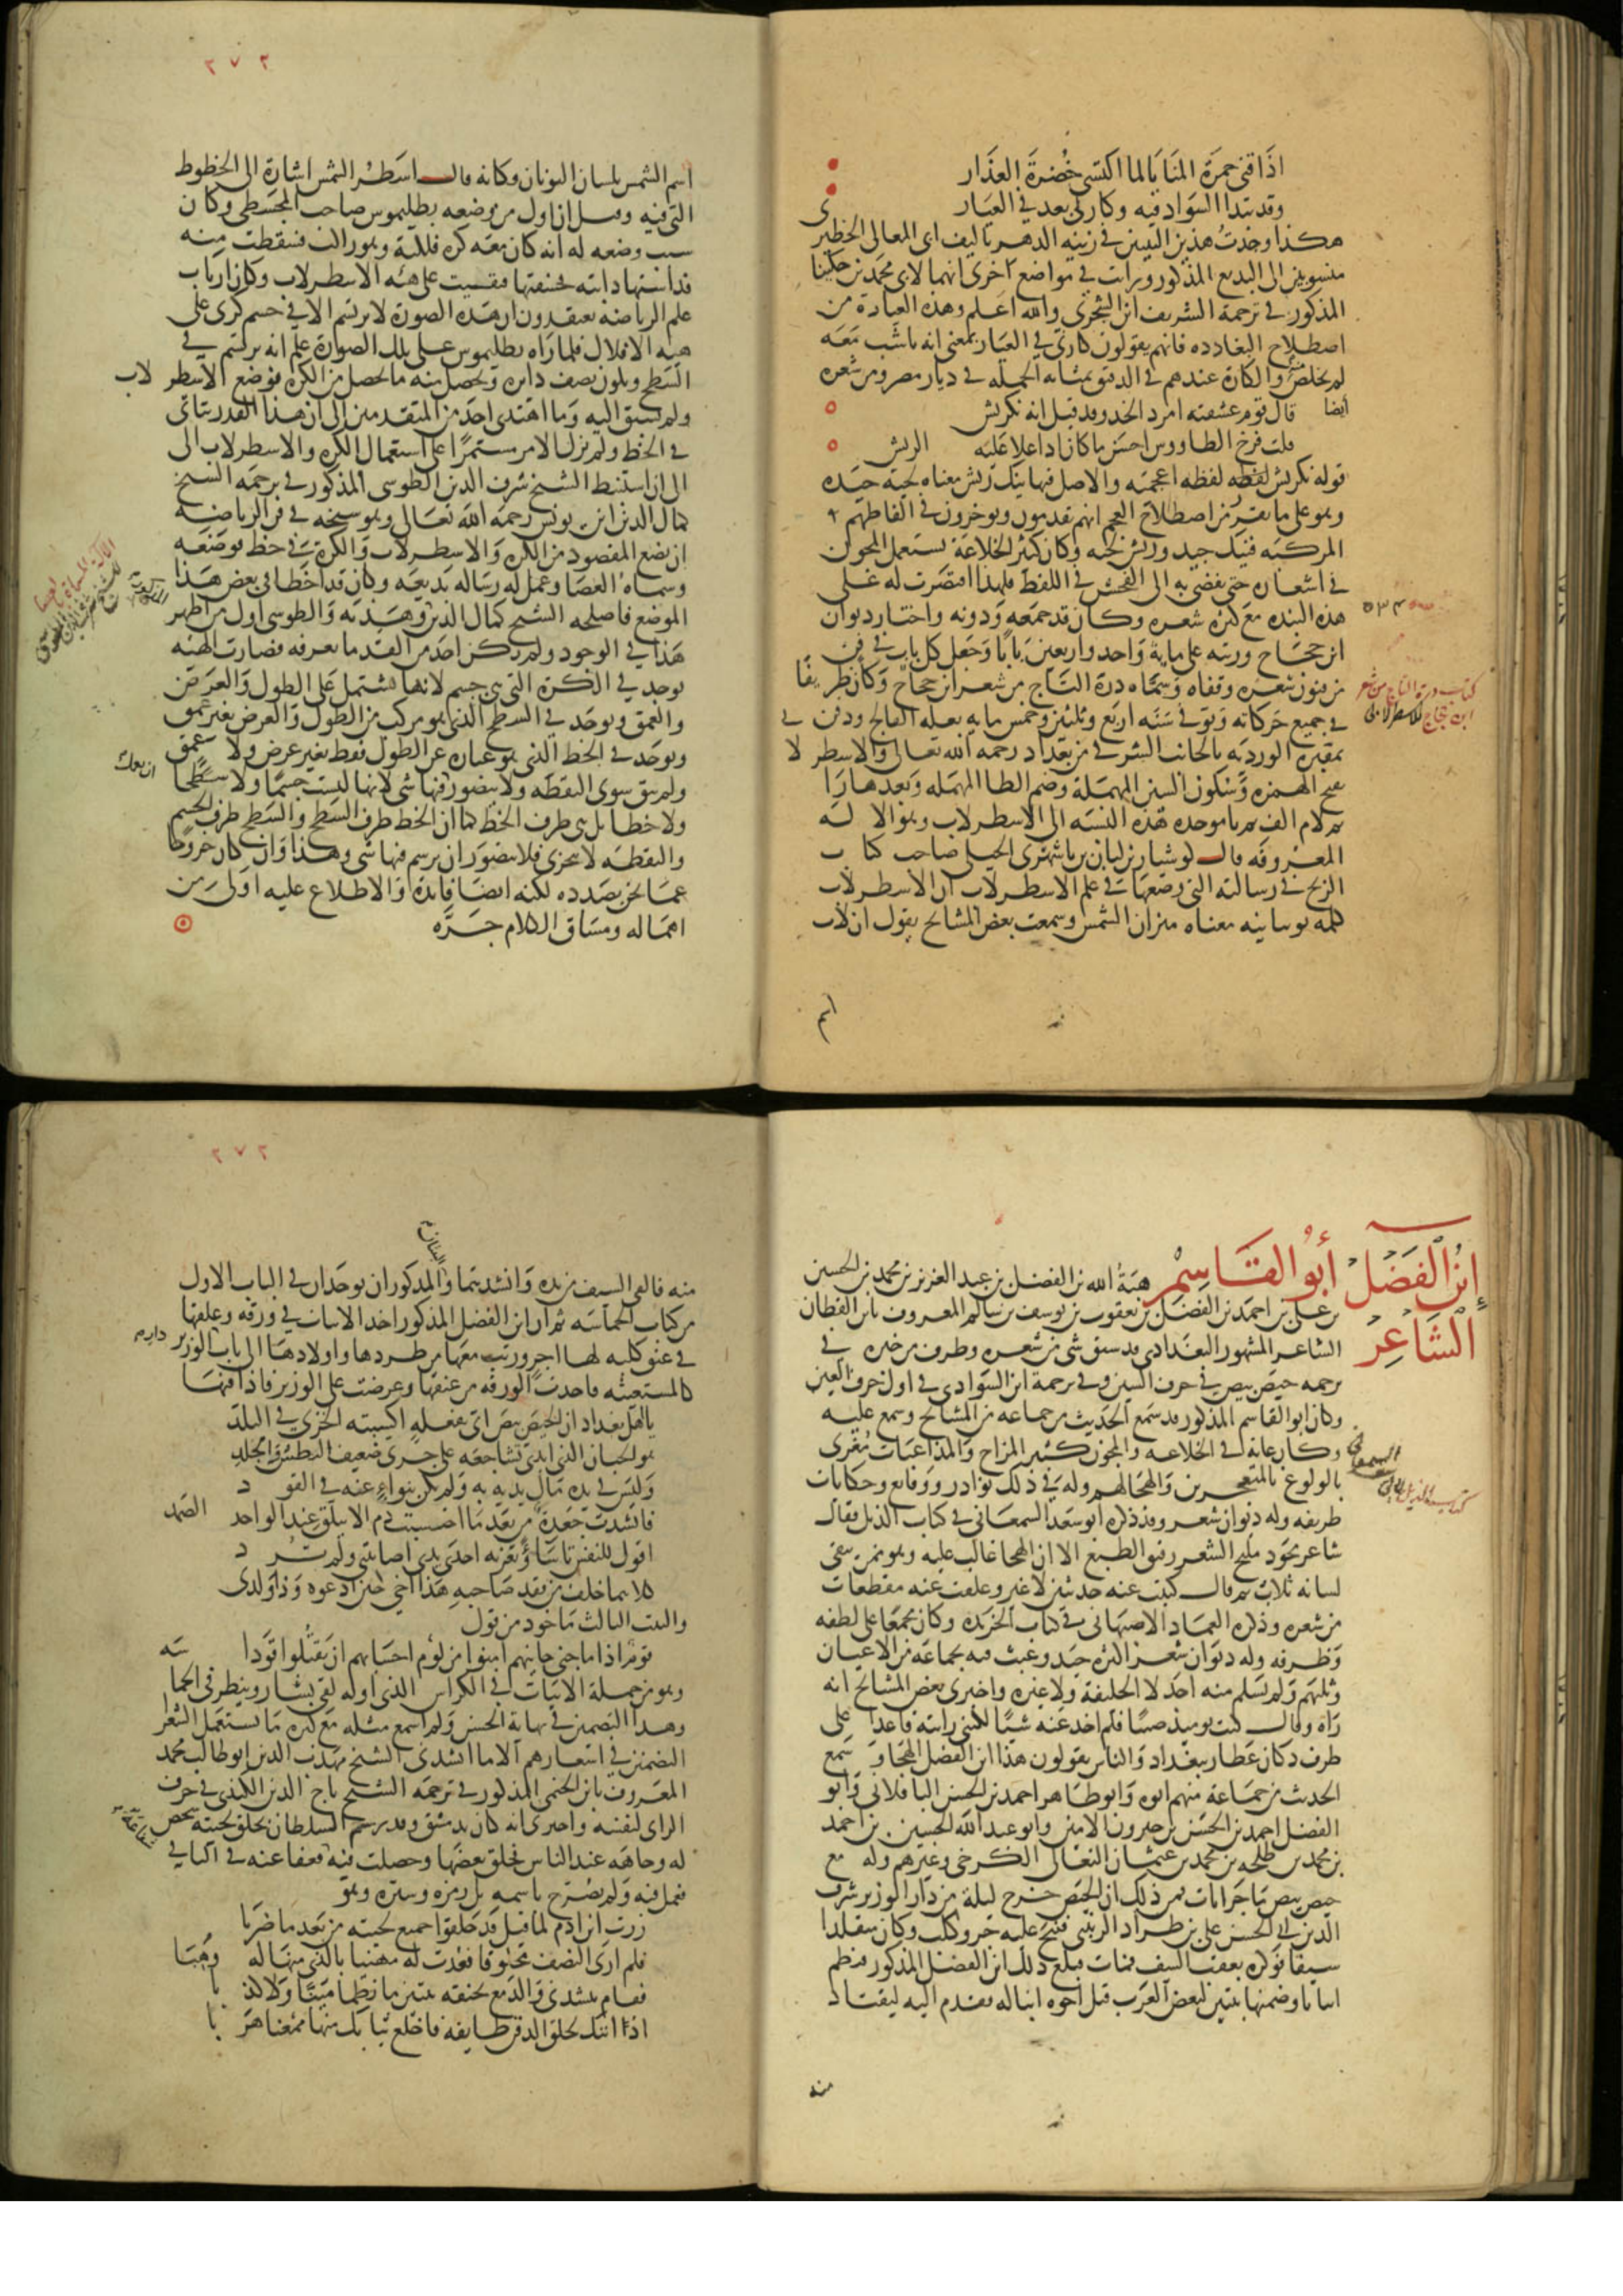 اذاقني حمرة المنايا لما اكتسى خضرة العذار
وقد تبدا السواد فيه وكارتي بعد في العيار
هكذا وجدت هذين البيتين في زينه الدهر تاليف ابى المعالى الخطيرى
منسوبين الى البديع المذكور ورايت في مواضع اخرى انهما لابى محمد بن حكينا
المذكور في ترجمة الشريف ابن الشجرى والله اعلم وهذه العبارة من
اصطلاح البغادده فانهم يقولون كارتى في العيار بمعنى انه ناشب معه
لم يخلص منه والكارة عندهم في الدقيق بمثابه الجمله في ديار مصر ومن شعره
ايضا قال قوم عشقته امرد الخد وقد قيل انه نكريش
قلت فرخ الطاووس احسن ما كان اذا علا عليه الريش
قوله نكريش لفظه لفظه اعجميه والاصل فيها نيك ريش معناه لحية جيده
وهو على ما تقرر من اصطلاح العجم انهم يقدمون ويؤخرون في الفاظهم
المركبه فنيك جيد وريش لحيه وكان كثير الخلاعة يستعمل المجون
في اشعاره حتى يفضى به الى الفحش في اللفظ فلهذا اقتصرت له على
هذه النبذه مع كثرة شعره وكان قد جمعه ودونه واختار ديوان
ابن حجاج ورتبه على ماية واحد واربعين بابا وجعل كل باب في فن
من فنون شعره وقفاه وسماه درة التاج من شعر ابن حجاج وكان ظريفا
في جميع حركاته وتوفى سنه اربع وثلثين وخمس مايه بعله الفالج ودفن في
بمقبره الورديه بالجانب الشرقى من بغداد رحمه الله تعالى والاسطرلابى
بفتح الهمزه وسكون السين المهملة وضم الطا المهمله وبعدها را
ثم لام الف ثم با موحده هذه النسبه الى الاسطرلاب وهو الاله
المعروفه قال كوشيار بن لبان بن باشهرى الجيلى صاحب كتاب
الزيج في رسالته التى وضعها في علم الاسطرلاب ان الاسطرلاب
كلمه يونانيه معناه ميزان الشمس وسمعت بعض المشايخ يقول ان لاب
اسم
٥٣٤
كتاب درة التاج من شعر
ابن حجاج للاسطرلابى
٢٧٢
اسم الشمس بلسان اليونان وكانه قال اسطر الشمس اشارة الى الخطوط
التى فيه وقيل ان اول من وضعه بطليموس صاحب المجسطى وكان
سبب وضعه له انه كان معه كره فلكية وهو راكب فسقطت منه
فداستها دابته فخسفتها فبقيت على هيئه الاسطرلاب وكان ارباب
علم الرياضه يعتقدون ان هذه الصورة لا ترتسم الا في جسم كرى على
هيئه الافلاك فلما راه بطليموس على تلك الصوارة علم انه يرتسم في
السطح ويكون نصف دايره ويحصل منه ما يحصل من الكره فوضع الاسطرلاب
ولم يسبق اليه وما اهتدى احد من المتقدمين الى ان هذا القدر يتاتى
في الخط ولم يزل الامر مستمرا على استعمال الكره والاسطرلاب الى
الى ان استنبط الشيخ شرف الدين الطوسى المذكور في ترجمه الشيخ
كمال الدين ابن يونس رحمه الله تعالى وهو شيخه في فن الرياضه
ان يضع المقصود من الكره والاسطرلاب والكرة في خط فوضعه
وسماه العصا وعمل له رساله بديعه وكان قد اخطا في بعض هذا
الموضع فاصلحه الشيخ كمال الدين وهذبه والطوسى اول من اظهر
هذا في الوجود ولم يكن احد من القدما يعرفه فصارت الهيئه
توجد في الكرة التى هى جسم لانها تشتمل على الطول والعرض
والعمق وتوجد في السطح الذى هو مركب من الطول والعرض بغير عمق
وتوجد في الخط الذى هو عبارة عن الطول فقط بغير عرض ولا عمق
ولم يبق سوى النقطه ولا يتصور فيها شى لانها ليست جسما ولا سطحا
ولا خطا بل هى طرف الخط كما ان الخط طرف السطح والسطح طرف الجسم
والنقطه لا تتجزى فلا يتصور ان يرسم فيها شى وهذا وان كان خروجا
عما نحن بصدده لكنه ايضا فايدة والاطلاع عليه اولى من
اهماله ومساق الكلام جره
ابن الفضل ابو القاسم هبة الله بن الفضل بن عبد العزيز بن محمد بن الحسين
الشاعر
بن على بن احمد بن الفضل بن يعقوب بن يوسف بن سالم المعروف بابن القطان
الشاعر المشهور البغدادى قد سبق شى من شعره وطرف من خبره في
ترجمه حيص بيص في حرف السين وفي ترجمة ابن السوادى في اول حرف العين
وكان ابو القاسم المذكور قد سمع الحديث من جماعه من المشايخ وسمع عليه
وكان غاية في الخلاعه والمجون كثير المزاح والمداعبات مغرى
بالولوع بالمتعجرفين والهجا لهم وله في ذلك نوادر ووقايع وحكايات
طريفه وله ديوان شعر وقد ذكره ابو سعد السمعانى في كتاب الذيل فقال
شاعر مجود مليح الشعر رقيق الطبع الا ان الهجا غالب عليه وهو ممن يتقى
لسانه ثلاث ثم قال كتبت عنه حديثين لا غير وعلقت عنه مقطعات
من شعره وذكره العماد الاصبهانى في كتاب الخريده وكان مجمعا على لطفه
وظرفه وله ديوان شعر اكثره جيد وعبث فيه بجماعة من الاعيان
وثلبهم ولم يسلم منه احد لا الخليفة ولا غيره واخبرنى بعض المشايخ انه
راه وقال كنت يوميذ صبيا فلم اخذ عنه شيئا لكننى رايته قاعدا على
طرف دكان عطار ببغداد والناس يقولون هذا ابن الفضل الهجا وسمع
الحديث من جماعة منهم ابوه وابو طاهر احمد بن الحسن الباقلانى وابو
الفضل احمد بن الحسن بن خيرون الامين وابو عبد الله الحسين بن احمد
بن محمد بن طلحه بن محمد بن عثمان النعالى الكرخى وغيرهم وله مع
حيص بيص ماجرايات فمن ذلك ان الحيص خرج ليلة من دار الوزير شرف
الدين ابى الحسن على بن طراد الزينبى فنبح عليه جرو كلب وكان متقلدا
سيفا فوكزه بعقب السيف فمات فبلغ ذلك ابن الفضل المذكور فنظم
ابياتا وضمنها بيتين لبعض العرب قتل اخوه ابنا له فقدم اليه ليقتاد
منه
٢٧٣
منه فالقى السيف من يده وانشدهما والبيتان المذكوران يوجدان في الباب الاول
من كتاب الحماسه ثم ان ابن الفضل المذكور اخذ الابيات في ورقه وعلقها
في عنق كلبه لها اجر ورتب معها من طردها واولادها الى باب دار الوزير
كالمستغيثه فاخذت الورقه من عنقها وعرضت على الوزير فاذا فيها
يا اهل بغداد ان الحيص بيص اتى بفعله اكسبته الخزى في البلد
هو الجبان الذى ابدى تشاجعه على جرى ضعيف البطش والجلد
وليس في يده مال يديه به ولم يكن ببواء عنه في القود
فانشدت جعدة من بعد ما احتسبت دم الابيلق عند الواحد الصمد
اقول للنفس تاساء وتعزيه احدى يدى اصابتنى ولم ترد
كلاهما خلف من فقد صاحبه هذا اخى حين ادعوه وذا ولدى
والبيت الثالث ماخوذ من قول
قوم اذا ما جنى جانيهم امنوا من لؤم احسابهم ان يقتلوا قودا
وهو من جملة الابيات في الكراس الذى اوله لقى بشار وينظر في الحماسه
وهذا التضمين في نهاية الحسن ولم اسمع مثله مع كثرة ما يستعمل الشعرا
التضمين في اشعارهم الا ما انشدنى الشيخ مهذب الدين ابو طالب محمد
المعروف بابن الخيمى المذكور في ترجمة الشيخ تاج الدين الكندى في حرف
الزاى لنفسه واخبرنى انه كان بدمشق وقد رسم السلطان بحلق لحية شخص
له وجاهه عند الناس فحلق بعضها وحصلت فيه شفاعة فعفا عنه في الباقي
فعمل فيه ولم يصرح باسمه بل رمزه وستره وهو
زرت ابن ادم لما قيل قد حلقوا جميع لحيته من بعد ما ضربا
فلم ارى النصف محلوقا فعدت له مهنيا بالذى منها له وهبا
فقام ينشدنى والدمع يخنقه بيتين ما نظما مينا ولا كذبا
اذا اتتك لحلق الذقن طايفه فاخلع ثيابك منها ممعنا هربا